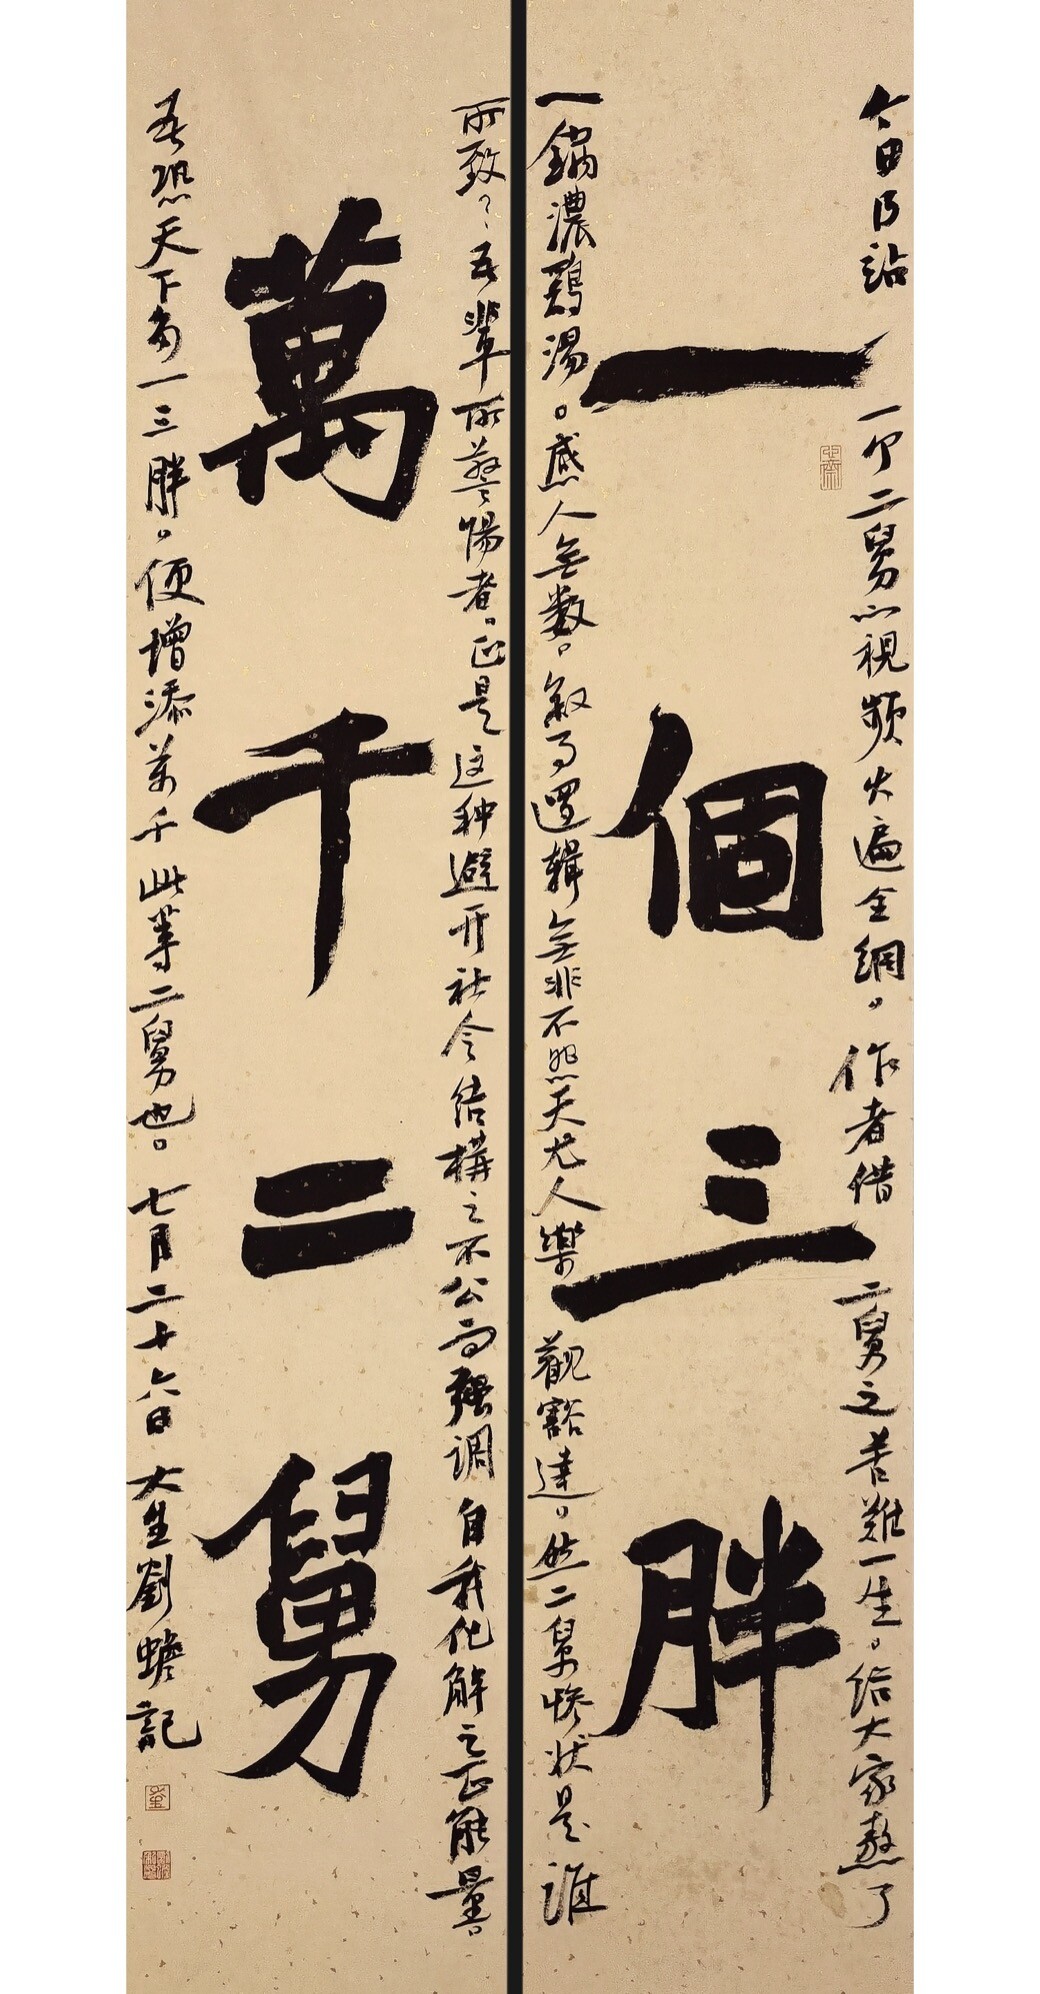 一個三胖
萬千二舅
今日B站一个二舅的視頻火遍全網。作者借二舅之苦難一生。给大家熬了
一鍋濃鷄湯。感人無数。叙事邏輯無非不怨天尤人樂觀豁達。然二舅惨状是誰
所致？吾輩所警惕者。正是这种避开社会结構之不公而强调自我化解之正能量。
吾恐天下多一三胖。便增添萬千此等二舅也。七月二十六日大生劉蟾記